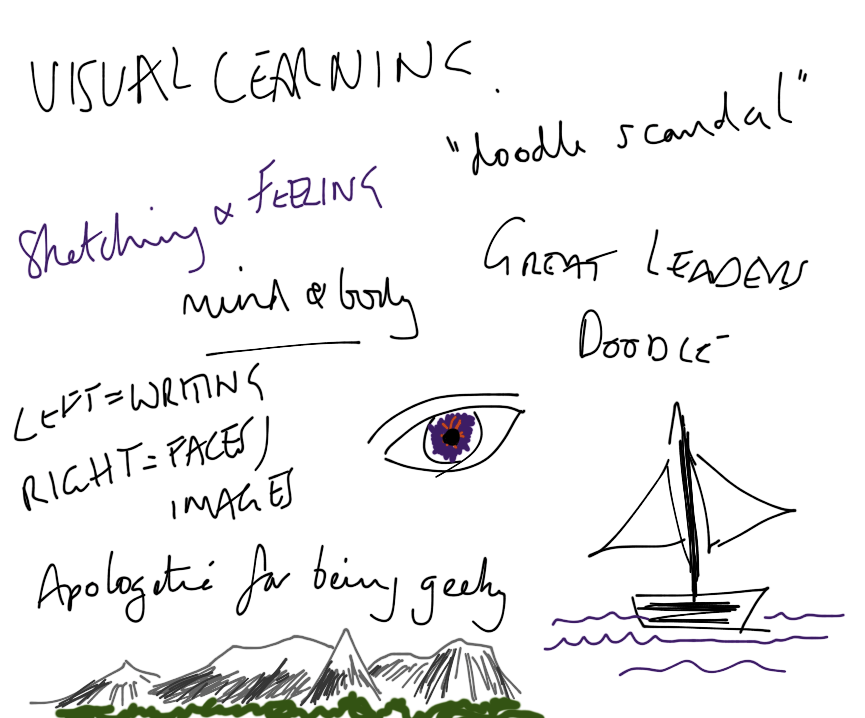 VISUAL LEARNING.
"doodle scandal"
Sketching & FEELING
mind & body
GREAT LEADERS
DOODLE
LEFT = WRITING
RIGHT = FACES/
IMAGES
Apologetic for being geeky